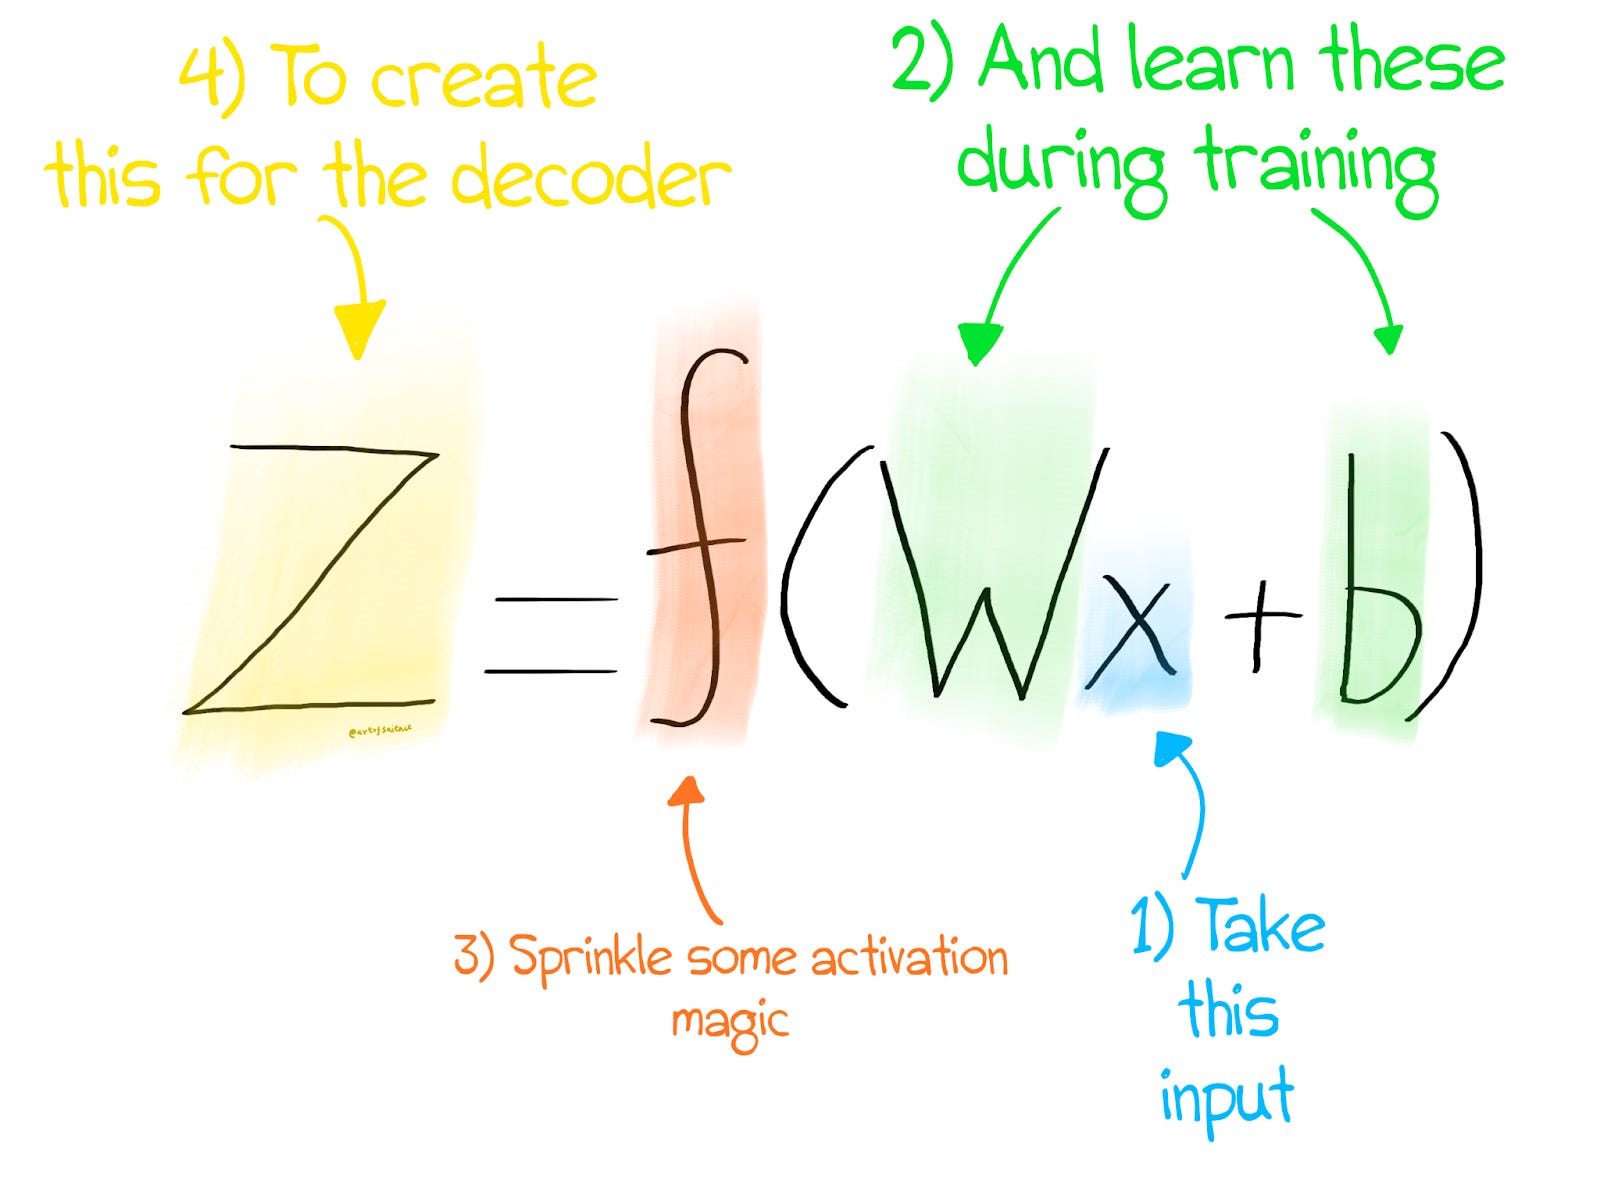 4) To create
this for the decoder
2) And learn these
during training
Z = f(Wx + b)
@artofsaience
3) Sprinkle some activation
magic
1) Take
this
input